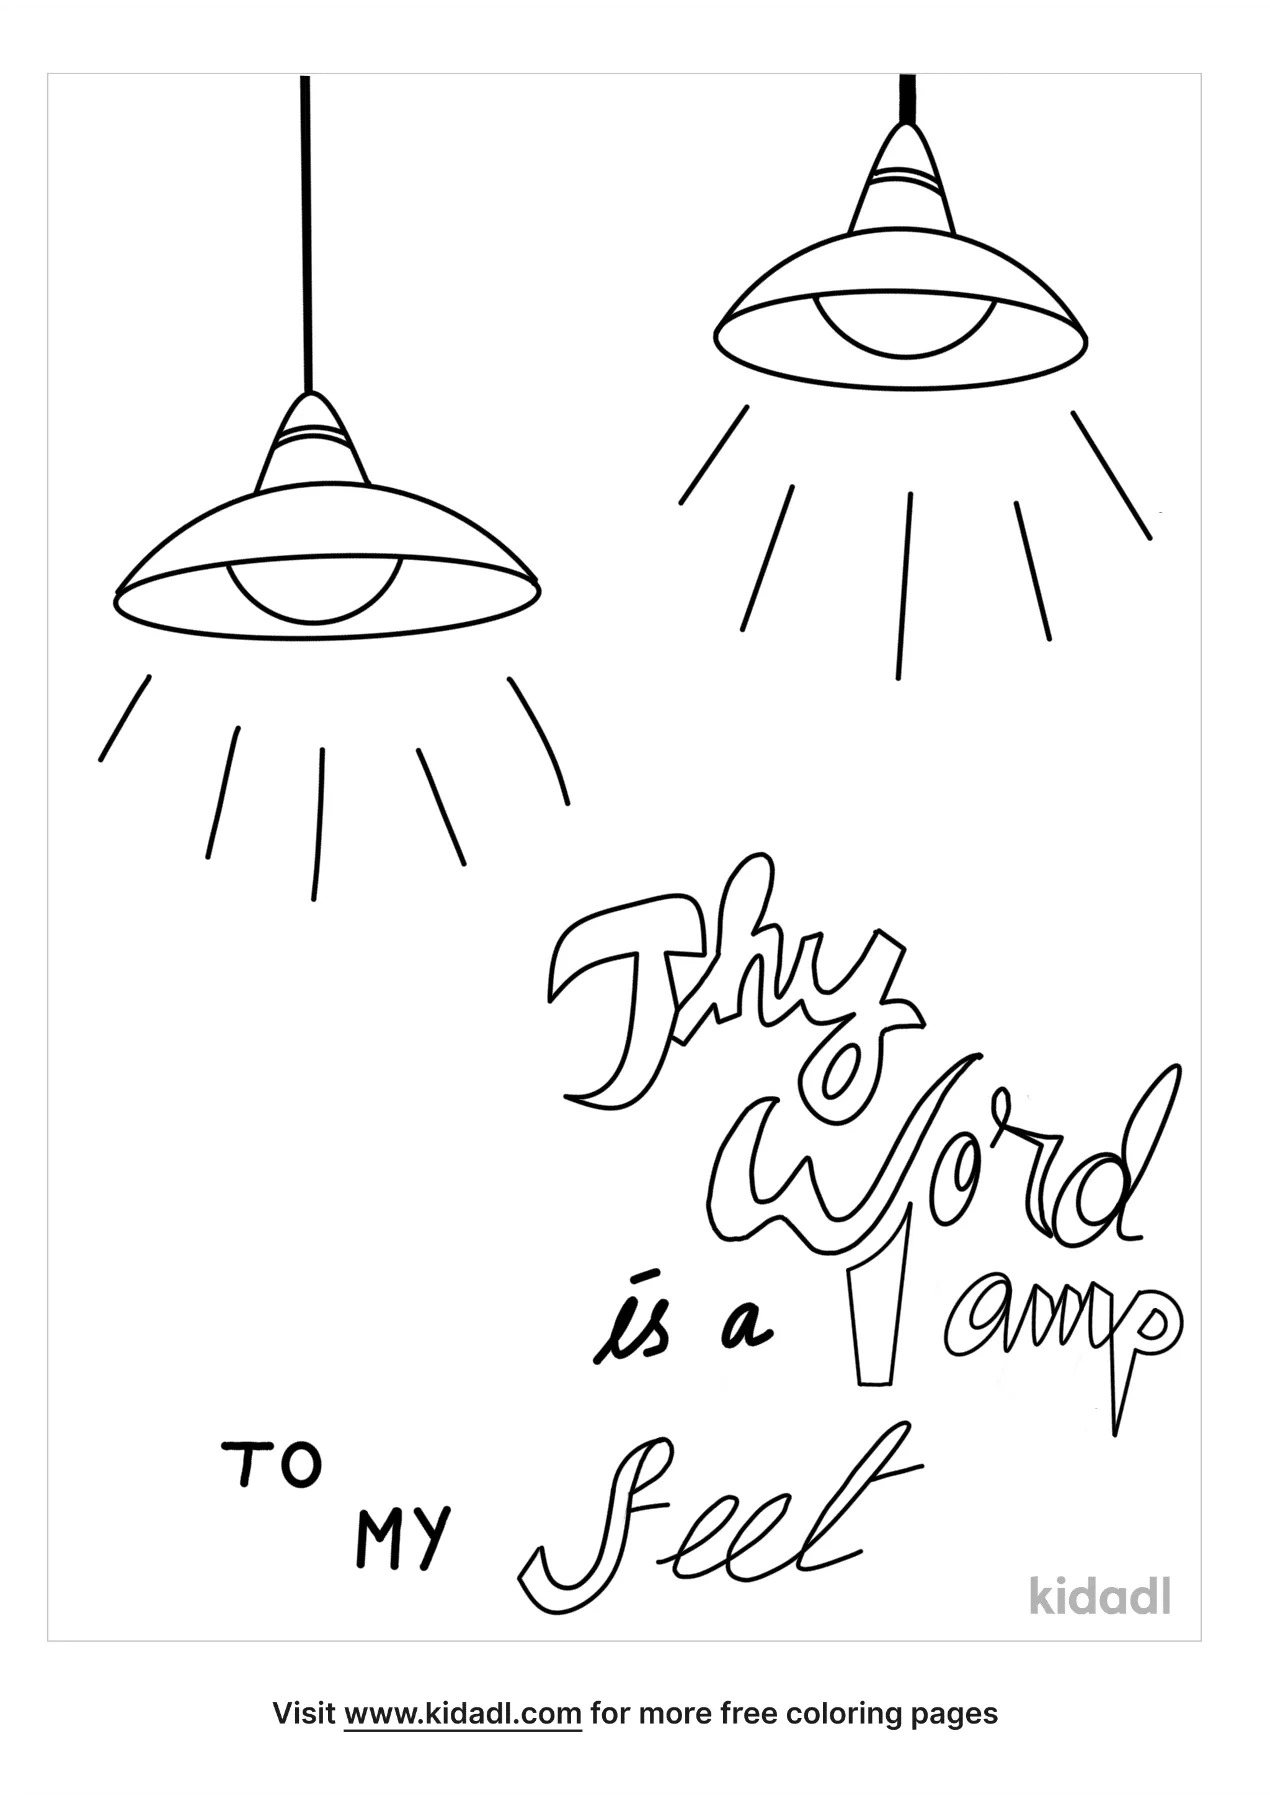 Thy
Word
is a lamp
TO
MY feet
kidadl
Visit www.kidadl.com for more free coloring pages